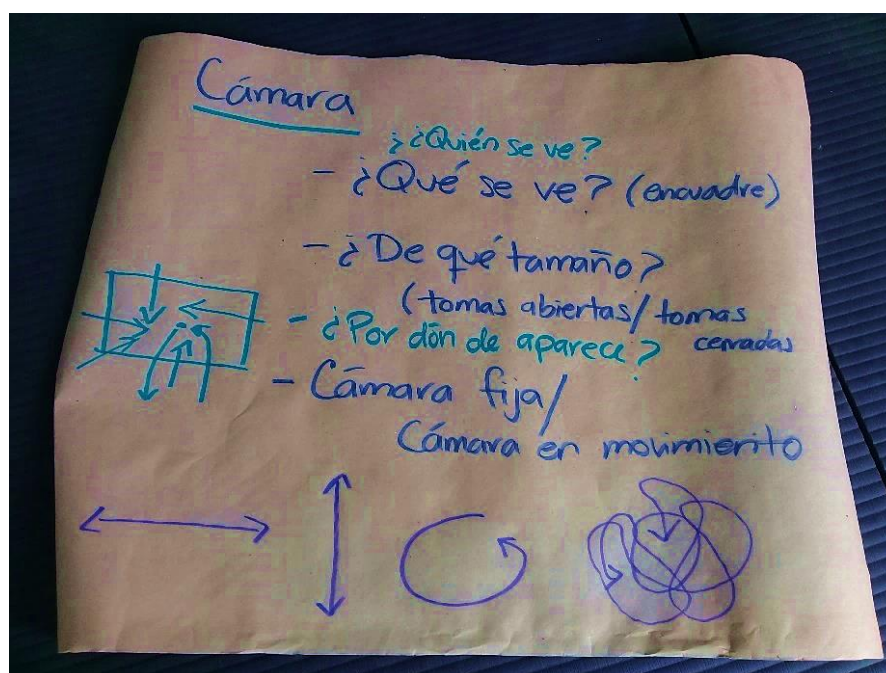 Cámara
¿¿Quién se ve?
- ¿Qué se ve? (encuadre)
- ¿De qué tamaño?
(tomas abiertas/tomas cerradas
- ¿Por dónde aparece?
- Cámara fija/
Cámara en movimiento